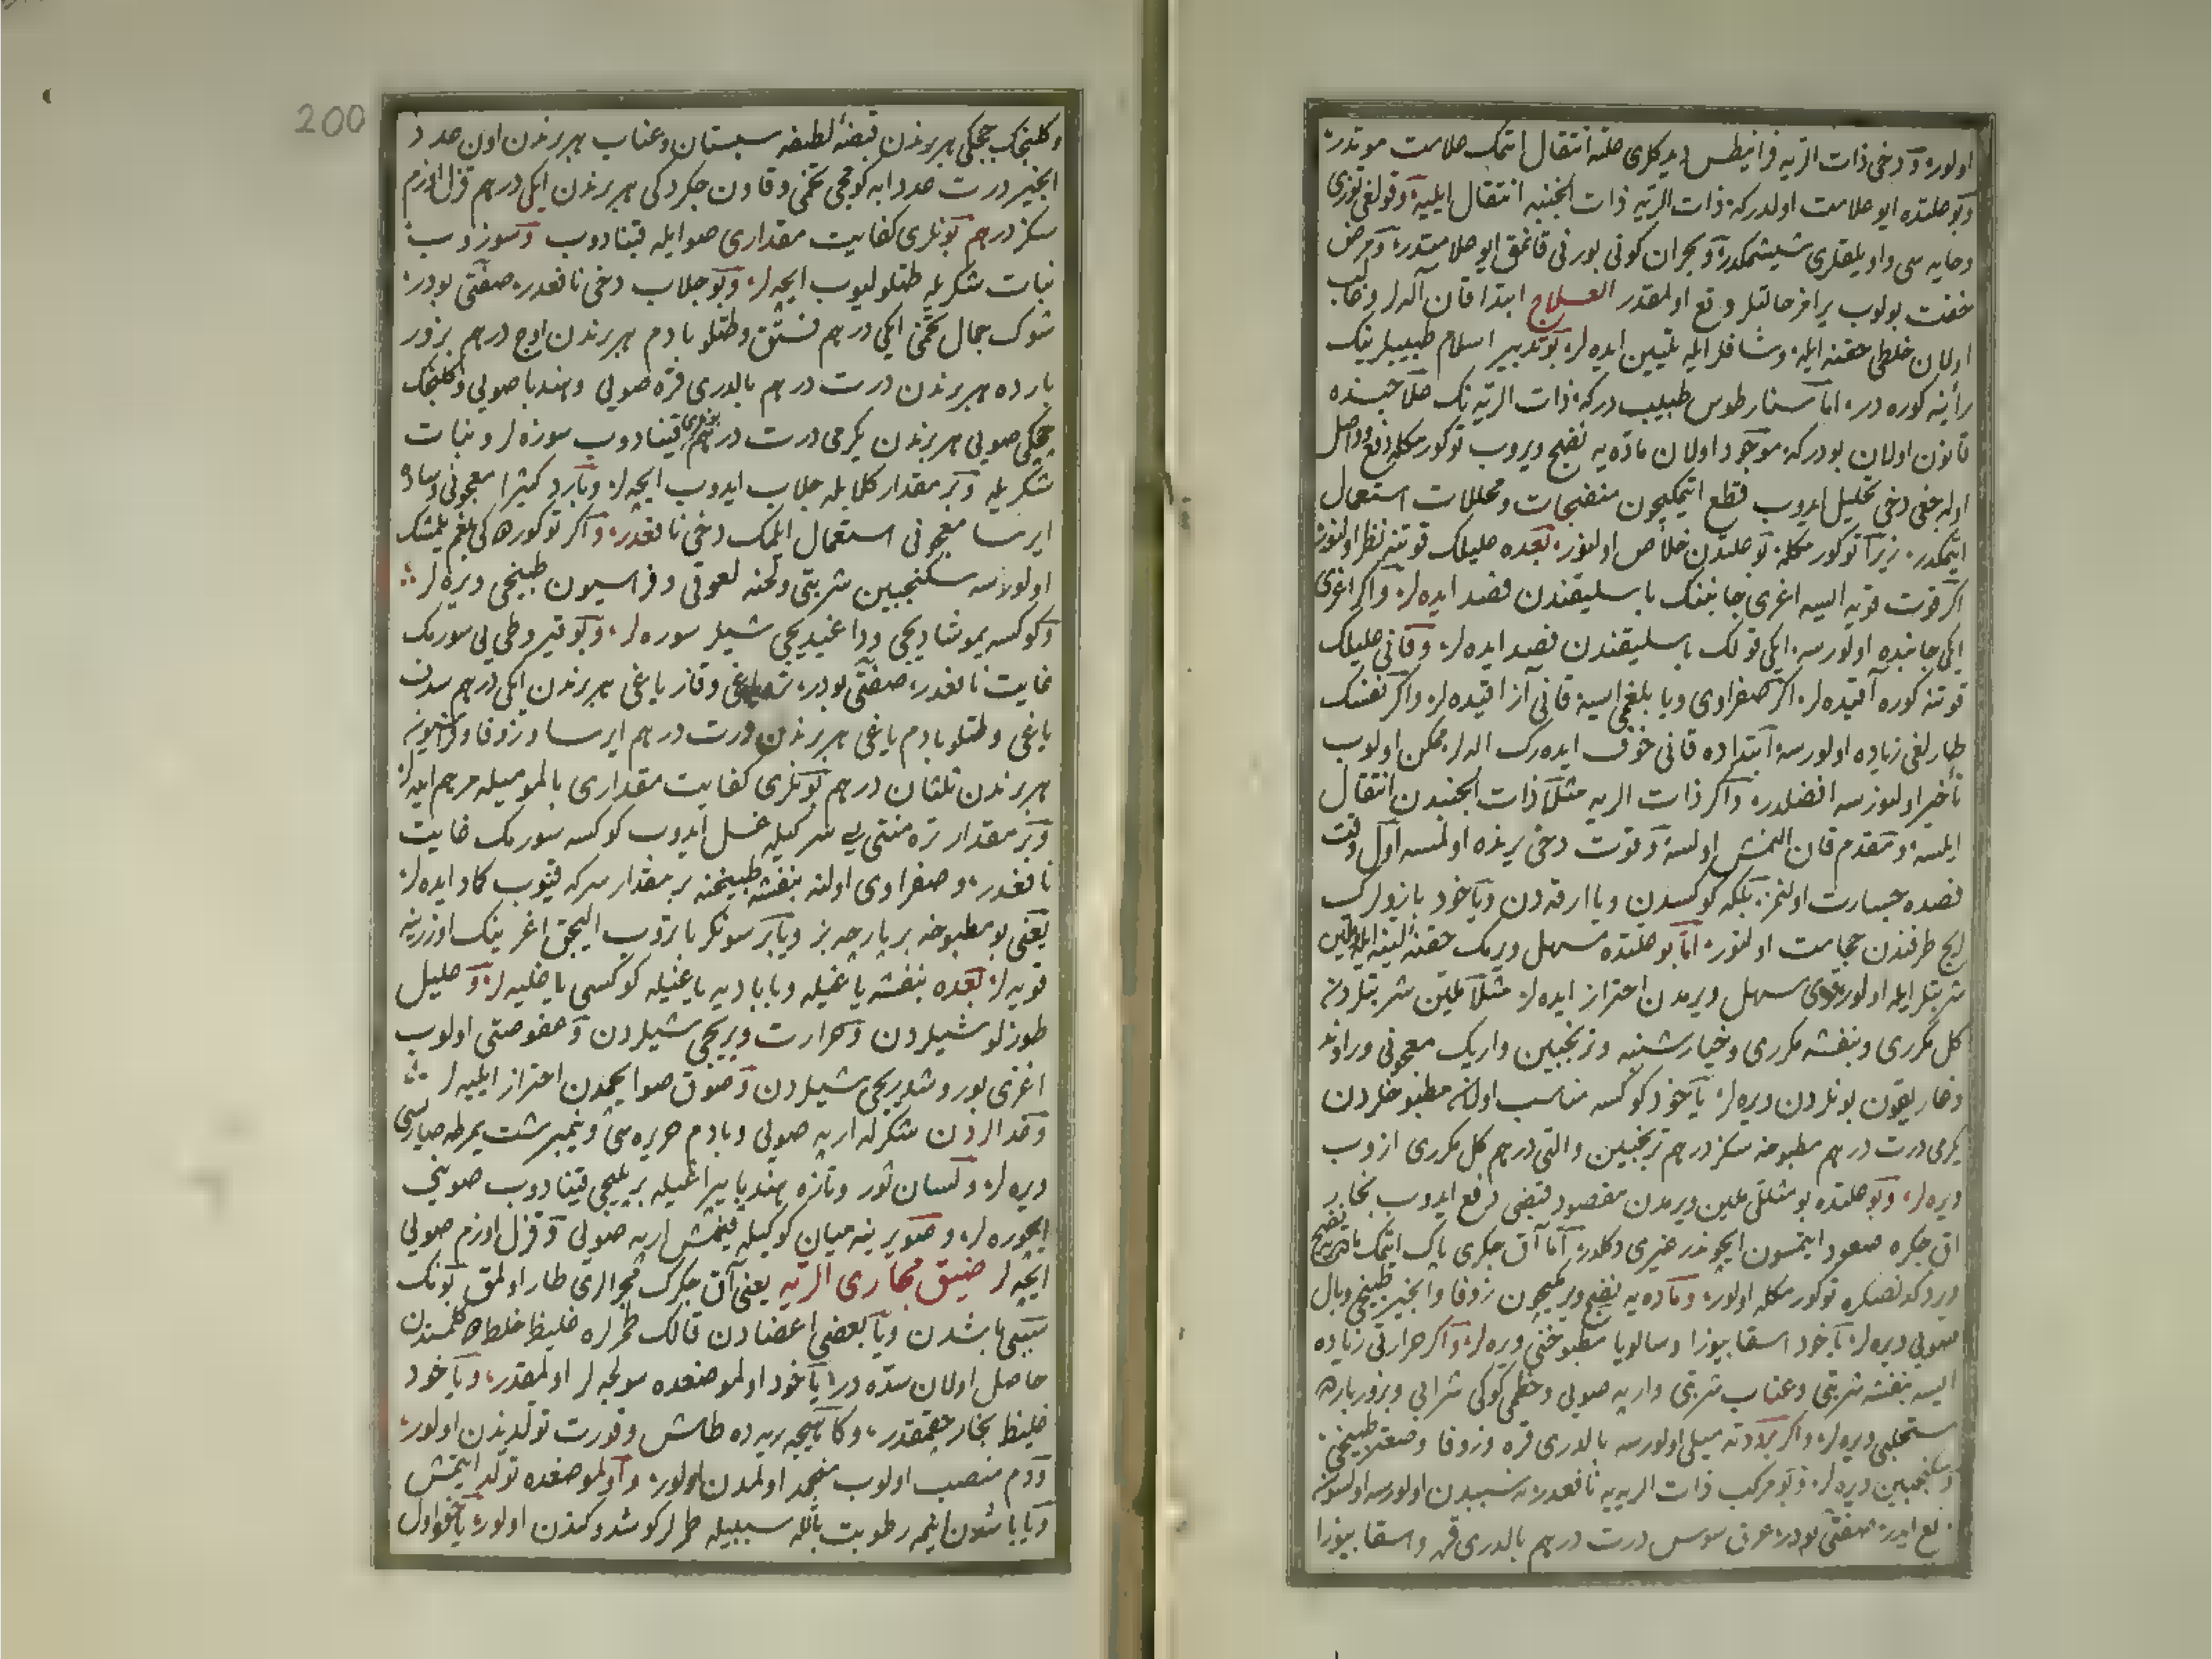 اولور و دخی ذات الریه فرانیطس دیدکلری علته انتقال اتمک علامت موتدر
و بو علتده ایو علامت اولدر که ذات الریه ذات الجنبه انتقال ایلیه و قولغی توزی
و خایه سی و اویلقلری شیشمکدر و بحران کونی بورنی قانمق ایو علامتدر و مرض
خفت بولوب براقز حالتلر واقع اولمقدر العلاج ابتدا قان آلدلر و غالب
اولان خلطی حقنه ایله و شافلر ایله تلیین ایده لر بو تدبیر اسلام طبیبلرینک
رأینه کوره در اما سنارطوس طبیب در که ذات الریه نک علاجنده
قانون اولان بودر که موجود اولان ماده یه نضج ویروب توکورمکله دفع و واصل
اوله جغی دخی تحلیل ایدوب قطع اتمکیچون منضجات و محللات استعمال
اتمکدر زیرا توکورمکله بو علتدن خلاص اولنور بعده علیلک قوتنه نظر اولنور
اکر قوت قویه ایسه اغری جانبنک باسلیقندن فصد ایده لر و اکر اغری
ایکی جانبده اولورسه ایکی قولک باسلیقندن فصد ایده لر و قانی علیلک
قوتنه کوره آقیده لر اکر صفراوی ویا بلغمی ایسه قانی آز اقیده لر و اکر نفسنک
طارلغی زیاده اولورسه ابتداده قانی خوف ایده رک اله لر ممکن اولوب
تأخیر اولنورسه افضلدر و اکر ذات الریه مثلا ذات الجنبدن انتقال
ایلسه و مقدم قان النمش اولسه و قوت دخی یرنده اولمسه اول وقت
فصده جسارت اولنمز بلکه کوکسدن ویا ارقه دن ویاخود بازولرک
ایچ طرفندن حجامت اولنور اما بو علتده مسهل ویرمک حقنه لینه ایله ملین
شربتلر ایله اولور قوی مسهل ویرمدن احتراز ایده لر مثلا ملین شربتلردن
کل مکرری و بنفشه مکرری و خیارشنبه و ترنجبین و اریک معجونی و راوند
و غاریقون بونلردن ویره لر یاخود کوکسه مناسب اولان مطبوخلردن
یکرمی درت درهم مطبوخه سکز درهم ترنجبین و التی درهم کل مکرری ازوب
ویره لر و بو علتده بو مثللی ملین ویرمدن مقصود قبضی دفع ایدوب بخار
اق جکره صعود ایتمسون ایچوندر غیری دکلدر اما آق جکری پاک اتمک ماده یه نضج
ویردکدنصکره توکورمکله اولور و ماده یه نضج ویرمکیچون زوفا و انجیر طبیخی و بال
صویی ویره لر یاخود اسقابیوزا و سالویا مطبوخنی ویره لر و اکر حرارتی زیاده
ایسه بنفشه شربتی و عناب شربتی و ارپه صویی و خطمی کوکی شرابی و بزور بارده
مستحلبی ویره لر و اکر برودته میلی اولورسه بالدری قره و زوفا و صعتر طبیخی
و سکنجبین ویره لر و بو مرکب ذات الریه یه نافعدر نه سببدن اولورسه اولسون
نفع ایدر صفتی بودر عرق سوس درت درهم بالدری قره و اسقابیوزا
200
و کلنجک چچکی هر برندن قبضه لطیفه سبستان و عناب هر برندن اون عدد
انجیر درت عدد ابه کومجی تخمی و قاون چکردکی هر برندن ایکی درهم قزل اوزم
سکز درهم بونلری کفایت مقداری صو ایله قینادوب و سوزوب
نبات شکریله طتلولیوب ایچه لر و بو جلاب دخی نافعدر صفتی بودر
شوک جمال تخمی ایکی درهم فستق و طتلو بادم هر برندن اوچ درهم بزور
بارده هر برندن درت درهم بالدری قره صویی و هندبا صویی و کلنجک
چچکی صویی هر برندن یکرمی درت درهم قینادوب سوزه لر و نبات
شکریله و بر مقدار کلابله جلاب ایدوب ایچه لر و بارد کثیرا معجونی و ساده
ایرسا معجونی استعمال ایلمک دخی نافعدر و اکر توکوره کی بلغم یلمشک
اولورسه سکنجبین شربتی و لحنه لعوقی و فراسیون طبیخی ویره لر
و کوکسه یومشادیجی و داغیدیجی شیلر سوره لر و بو قیروطی یی سورمک
غایت نافعدر صفتی بودر یاغی و قاز یاغی هر برندن ایکی درهم سوسن
یاغی و طتلو بادم یاغی هر برندن درت درهم ایرسا و زوفا و
هر برندن ثلثان درهم بونلری کفایت مقداری بالمومیله مرهم ایده لر
و بر مقدار تره منتی یی سرکه ایله غسل ایدوب کوکسه سورمک غایت
نافعدر و صفراوی اولنه بنفشه طبیخنه بر مقدار سرکه قیوب کماد ایده لر
یعنی بو مطبوخه بر پارچه بز ویا بر سونکر باتروب الیجق اغرینک اوزرینه
قویه لر بعده بنفشه یاغیله ویا بادیه یاغیله کوکسی یاغلیه لر و علیل
طوزلو شیلردن و حرارت ویریجی شیلردن و عفوصتی اولوب
اغزی بوروشدیریجی شیلردن و صوق صو ایچمدن احتراز ایلیه لر
و غدالردن شکرله ارپه صویی و بادم حریره سی و نیمبرشت یمرطه صاریسی
ویره لر و لسان ثور و تازه هندبا یبراغیله بر پلیجی قینادوب صوینی
ایچوره لر و صو یرینه میان کوکیله پیشمش ارپه صویی و قزل اوزم صویی
ایچه لر ضیق مجاری الریه یعنی آق جکرک مجرالری طار اولمق بونک
سببی باشدن ویا بعضی اعضادن قالک طمرلره غلیظ خلطلر کلمسندن
حاصل اولان سده در یاخود اولموضعده سولجه لر اولمقدر ویاخود
غلیظ بخار جقمقدر و کاهیجه ریه ده طاش و قورت تولدیندن اولور
و دم منصب اولوب منجمد اولمدن اولور و اولموضعده تولد ایتمش
ویا باشدن اینمه رطوبت بالله سببیله طمرلر کوشدوکندن اولور یاخود اول